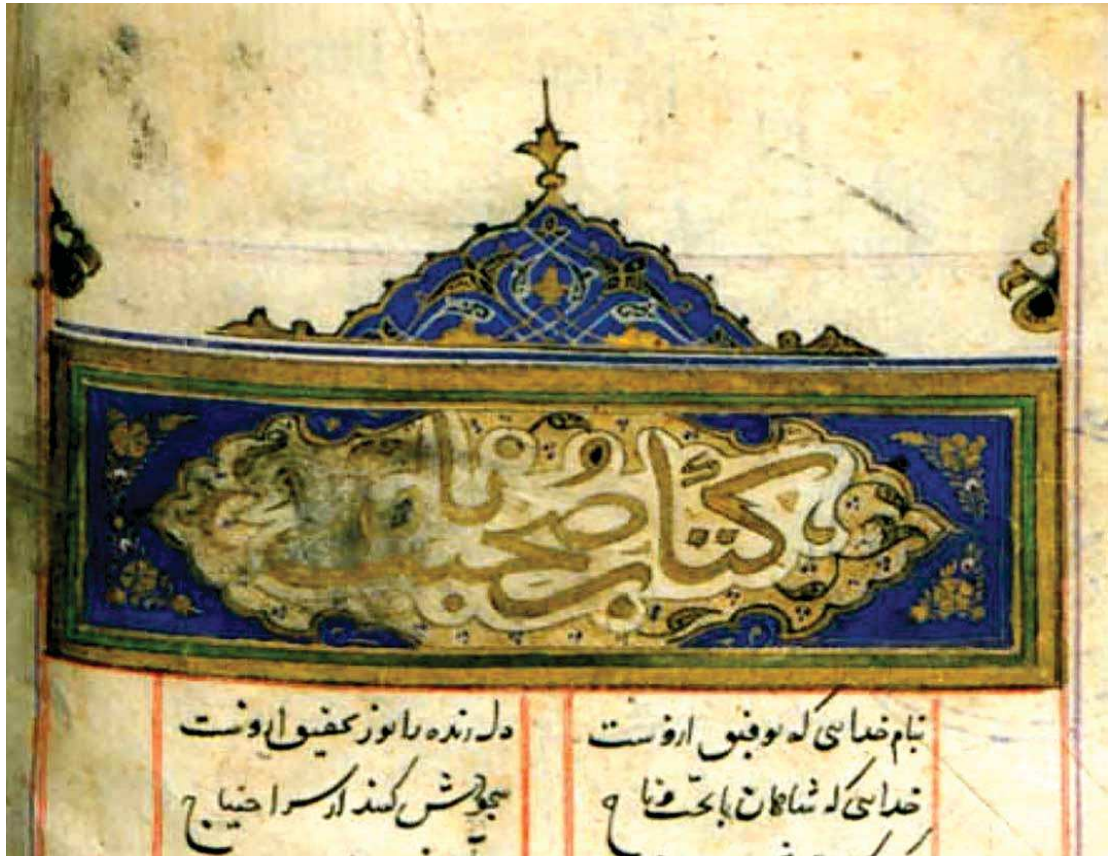 کتاب صحبت نا
بنام خدایی که توفیق ازوست دل زنده را نور تحقیق ازوست
خدایی که شاهان با تخت و تاج سجودش کنند از سر احتیاج